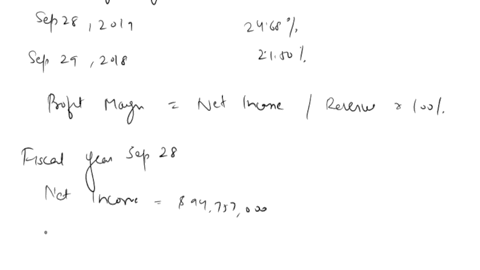 Sep 28, 2019 24.68%
Sep 29, 2018 21.50%
Profit Margin = Net Income / Revenue × 100%
Fiscal year Sep 28
Net Income = $94,757,000